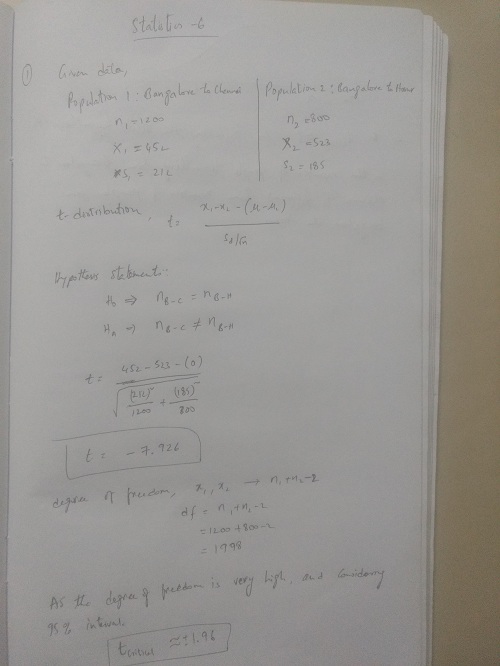 Statistics - 6
① Given data,
Population 1 : Bangalore to Chennai
n₁ = 1200
x₁ = 452
s₁ = 212
Population 2 : Bangalore to
n₂ = 800
x₂ = 523
s₂ = 185
t-distribution, t = x₁-x₂ - (μ₁-μ₂) / s₂/√n
Hypothesis statement:-
H₀ ⇒ n B-C = n B-H
Hₐ ⇒ n B-C ≠ n B-H
t = 452 - 523 - (0) / √((212)²/1200 + (185)²/800)
t = -7.926
degree of freedom, x₁, x₂ → n₁+n₂-2
df = n₁+n₂-2
= 1200 + 800 - 2
= 1998
As the degree of freedom is very high, and considering
95% interval
t critical ≈ ±1.96